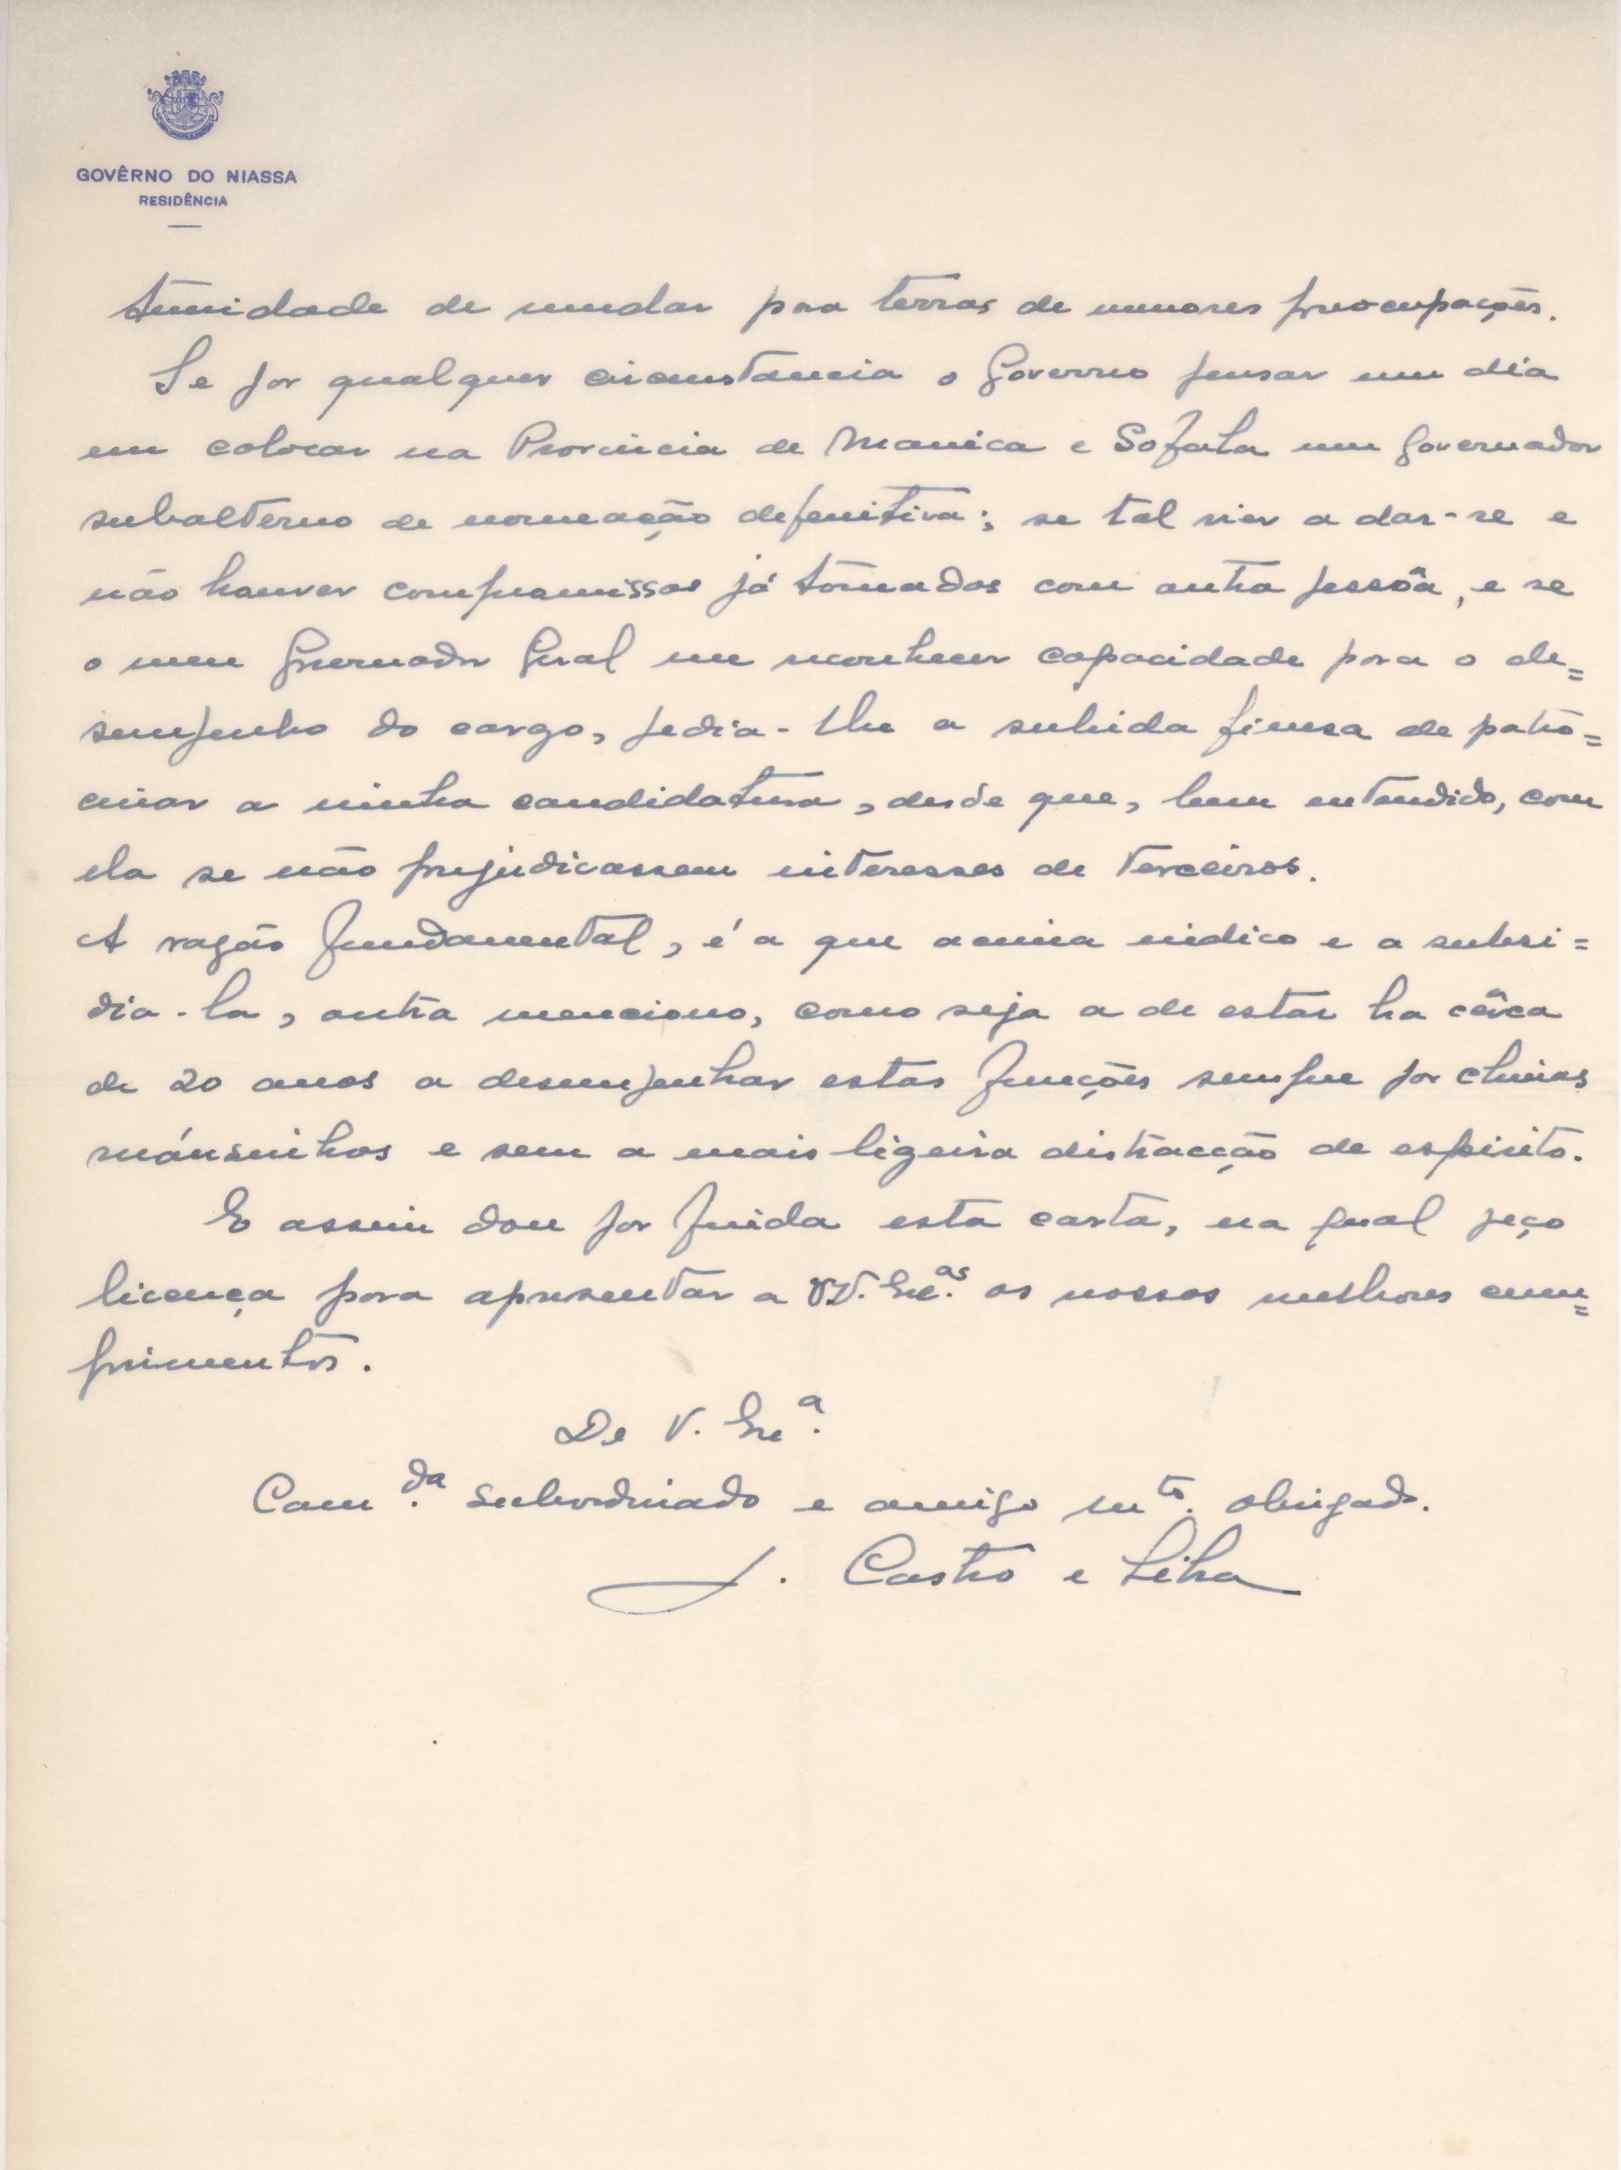 GOVÊRNO DO NIASSA
RESIDÊNCIA
tunidade de mudar para terras de menores preocupações.
Se por qualquer circunstancia o Governo pensar um dia
em colocar na Provincia de Manica e Sofala um Governador
subalterno de nomeação defenitiva; se tal vier a dar-se e
não houver compromissos já tomados com outra pessôa, e se
o meu Governador Geral me reconhecer capacidade para o de=
sempenho do cargo, pedia-lhe a subida fineza de patro=
cinar a minha candidatura, desde que, bem entendido, com
ela se não prejudicassem interesses de terceiros.
A razão fundamental, é a que acima indico e a subsi=
dia-la, outra menciono, como seja a de estar ha cêrca
de 20 anos a desempenhar estas funções sempre por climas
e sem a mais ligeira distracção de espirito.
E assim dou por finda esta carta, na qual peço
licença para apresentar a VV. Exc.as os nossos melhores cum=
primentos.
De V. Exc.a
Cam.da subordinado e amigo m.to obrigado.
J. Castro e Silva